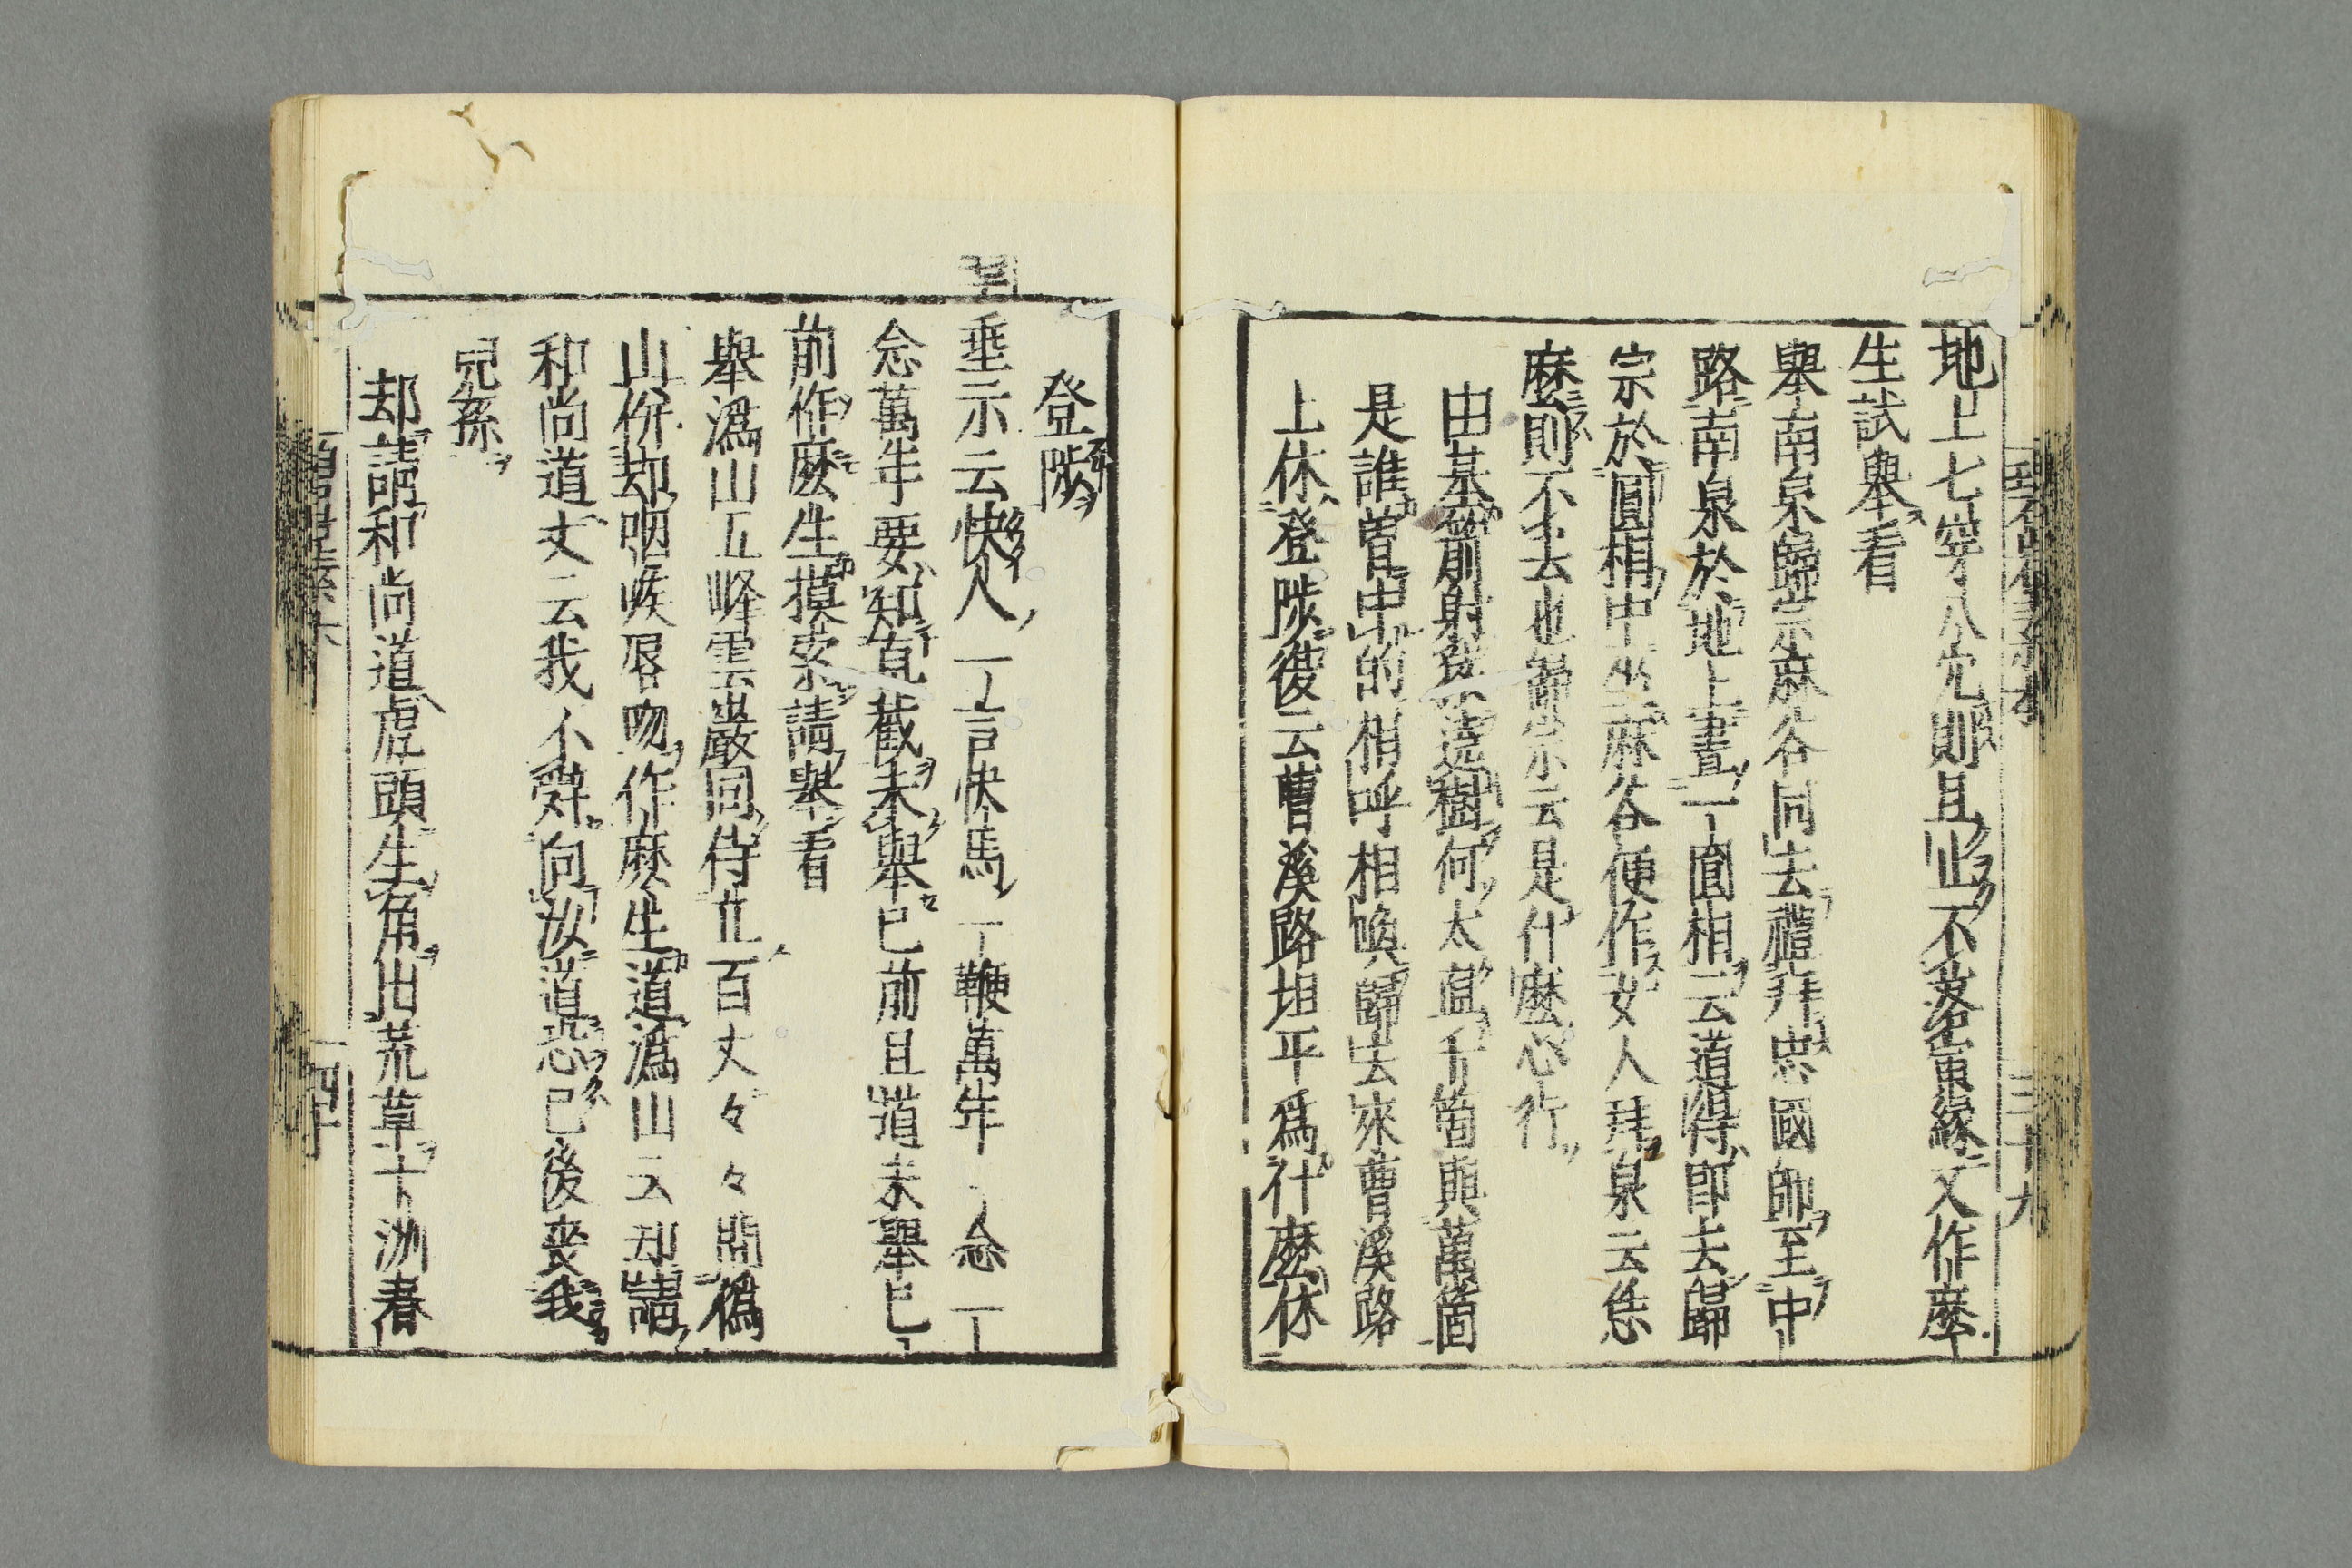 地上七穿八穴則且止不落寅緣又作麼
生試舉看
舉南泉歸宗麻谷同去禮拜忠國師至中
路南泉於地上畫一圓相云道得即去歸
宗於圓相中坐麻谷便作女人拜泉云恁
麼則不去也歸宗云是什麼心行
由基箭射猿遶樹何太直千箇與萬箇
是誰曾中的相呼相喚歸去來曹溪路
上休登陟復云曹溪路坦平為什麼休
三十九
登陟
垂示云快人一言快馬一鞭萬年一念一
念萬年要知直截未舉已前且道未舉已
前作麼生摸索請舉看
舉溈山五峰雲巖同侍立百丈々々問溈
山併却咽喉唇吻作麼生道溈山云却請
和尚道丈云我不辭向汝道恐已後喪我
兒孫
却請和尚道虎頭生角出荒草十洲春
四十